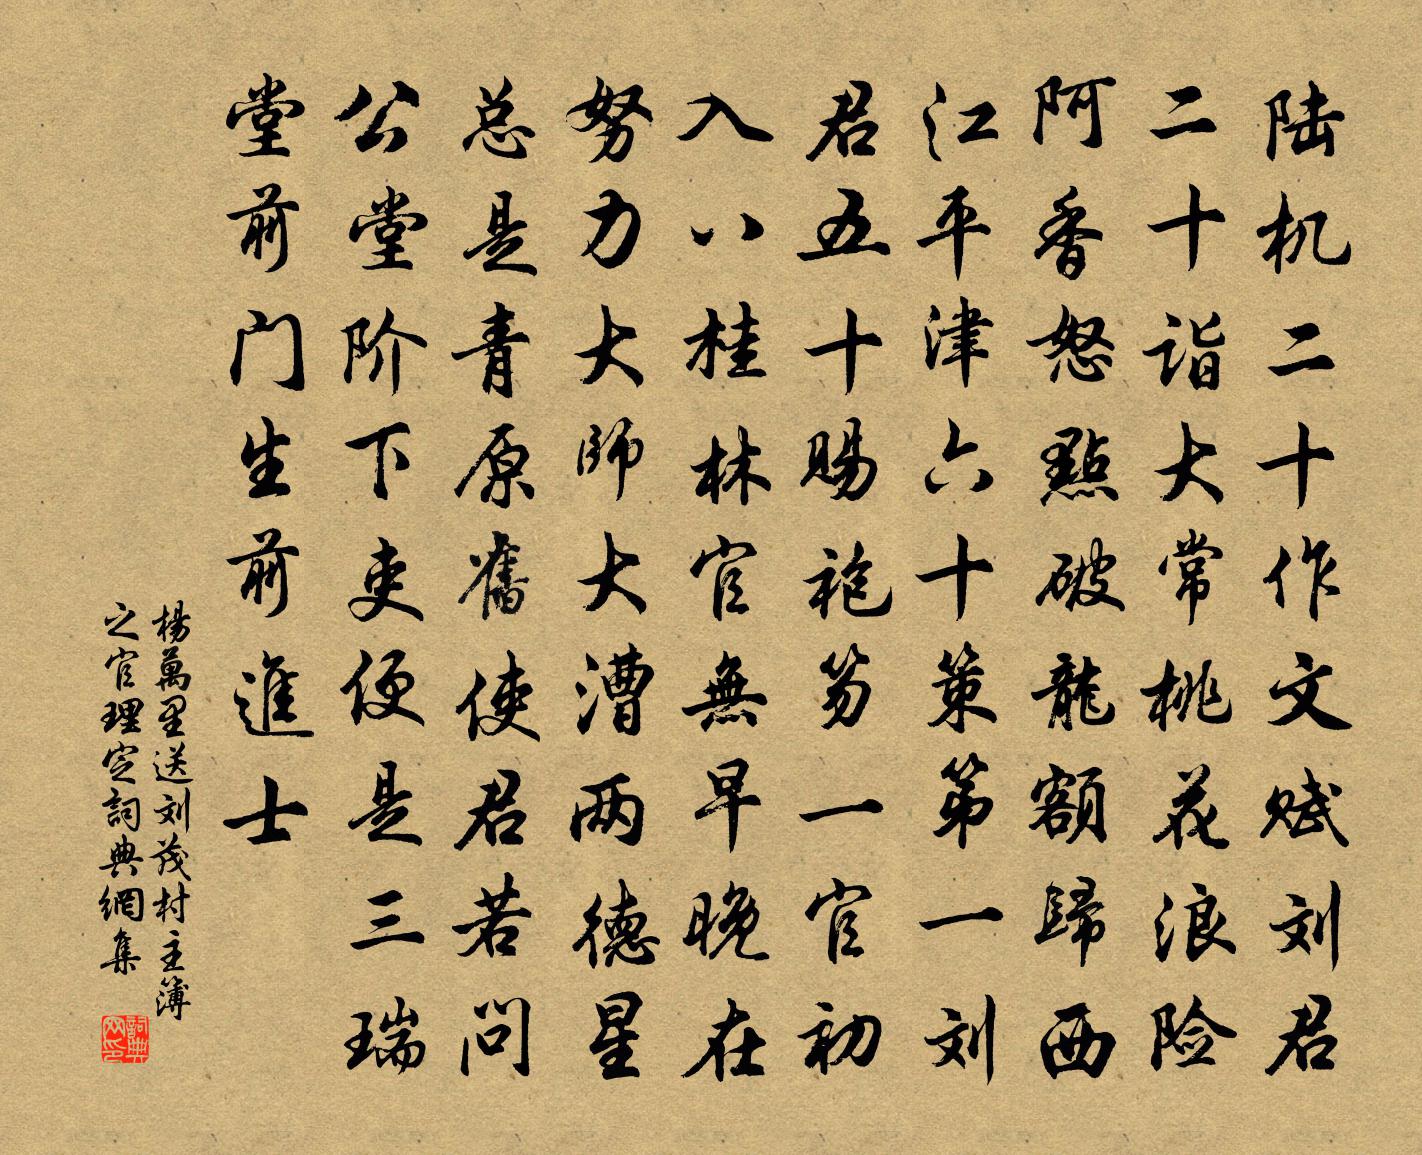 陆机二十作文赋刘君
二十诣大常桃花浪险
阿香怒點破龍额歸西
江平津六十策第一刘
君五十赐袍笏一官初
入八桂林官無早晚在
努力大師大漕两德星
总是青原舊使君若问
公堂阶下吏便是三瑞
堂前门生前進士
楊萬里送刘茂村主簿
之官理定詞典網集
詞典
网印